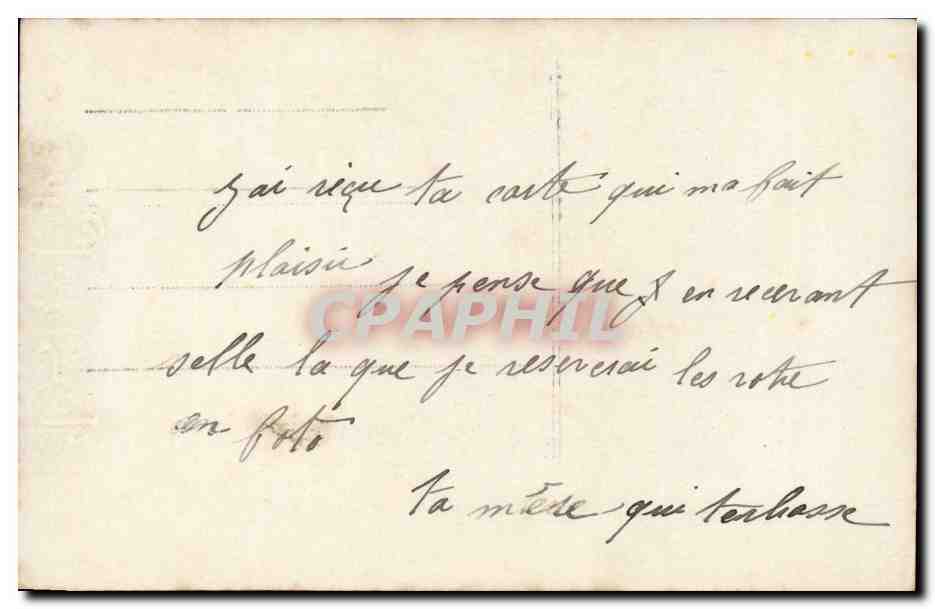 j'ai reçu ta carte qui ma fait
plaisir je pense que en recevant
selle la que je reseverai les votre
en foto
ta mère qui tenbrasse
CPAPHIL